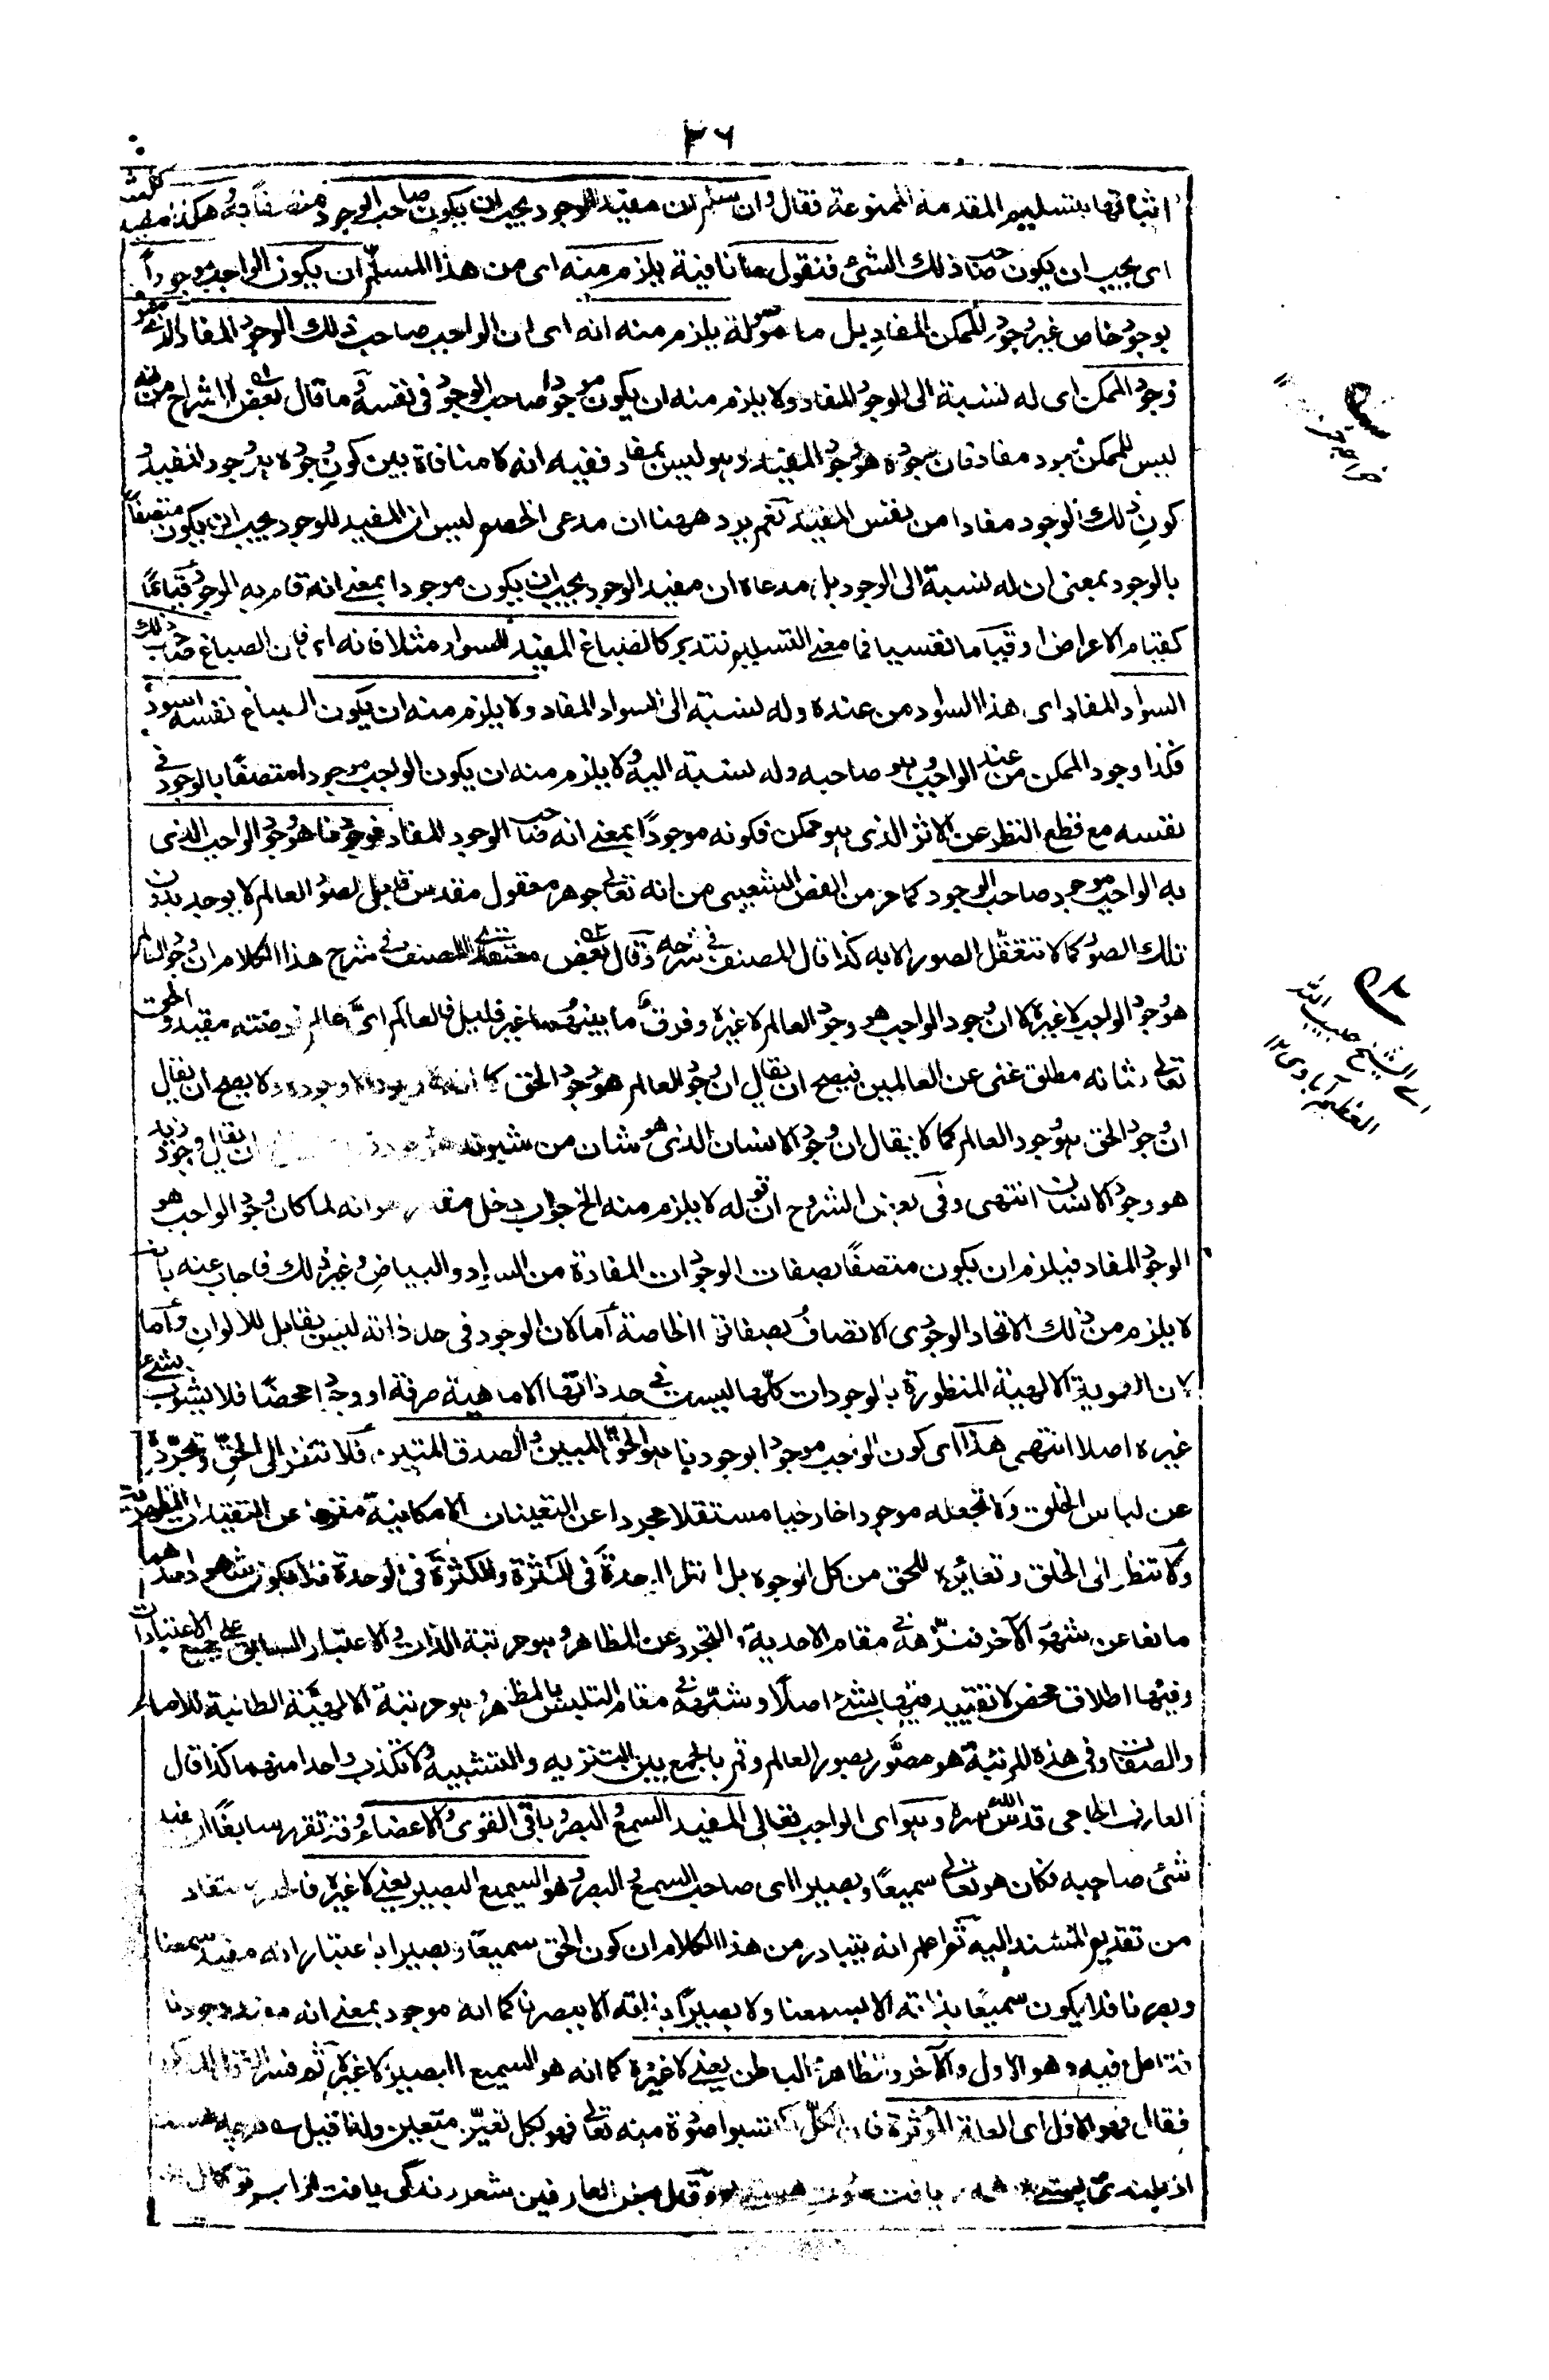 ٣٦
اثباتها بتسليم المقدمة الممنوعة فقال وان سلم ان مفيد الوجود يجب ان يكون صاحب الوجود متصفا به هكذا مفيد كل شئ
اى يجب ان يكون صاحب ذلك الشئ فنقول ما نافية يلزم منه اى من هذا المسلّم ان يكون الواجب موجوداً
بوجود خاص غير وجود الممكن المفاد بل ما موصولة يلزم منه انه اى ان الواجب صاحب ذلك الوجود المفاد الذى هو
وجود الممكن اى له نسبة الى الوجود المفاد ولا يلزم منه ان يكون موجودا صاحب الوجود فى نفسه وما قال بعض الشراح من انه
ليس للممكن وجود مفاد فان وجوده هو وجود المفيد وهو ليس بمفاد ففيه انه لا منافاة بين كون وجوده وجود المفيد و
كون ذلك الوجود مفادا من نفس المفيد نعم يرد ههنا ان مدعى الخصم ليس ان المفيد للوجود يجب ان يكون متصفاً
بالوجود بمعنى ان له نسبة الى الوجود بل مدعاه ان مفيد الوجود يجب ان يكون موجودا بمعنى انه قام به الوجود قياماً
كقيام الاعراض او قياما نفسيا فما معنى التسليم فتدبر كالصباغ المفيد للسواد مثلا فانه اى فان الصباغ صاحب ذلك
السواد المفاد اى هذا السواد من عنده وله نسبة الى السواد المفاد ولا يلزم منه ان يكون الصباغ نفسه اسود
فكذا وجود الممكن من عند الواجب وهو صاحبه وله نسبة اليه ولا يلزم منه ان يكون الواجب موجودا متصفا بالوجود فى
نفسه مع قطع النظر عن الاثر الذى هو ممكن فكونه موجوداً بمعنى انه صاحب الوجود المفاد فوجودنا هو وجود الواجب الذى
به الواجب موجود صاحب الوجود كما مر من الفص الشعيبى من انه تعالى جوهر معقول مقدس قابل لصور العالم لا يوجد بدون
تلك الصور كما لا تتعقل الصور الا به كذا قال المصنف فى شرحه وقال بعض معتقدى المصنف فى شرح هذا الكلام ان وجود العالم
هو وجود الواجب لا غيره كما ان وجود الواجب هو وجود العالم لا غيره وفرق ما بينهما غير قليل فالعالم اىّ عالم فرضته مقيد والحق
تعالى شانه مطلق غنى عن العالمين فيصح ان يقال ان وجود العالم هو وجود الحق ولا يصح ان يقال
ان وجود الحق هو وجود العالم كما لا يقال ان وجود الانسان الذى هو شان من شيونه ان يقال وجود زيد
هو وجود الانسان انتهى وفى بعض الشروح ان قوله لا يلزم منه الخ جواب دخل مقدر هو انه لما كان وجود الواجب هو
الوجود المفاد فيلزم ان يكون متصفاً بصفات الوجودات المفادة من السواد والبياض وغير ذلك فاجاب عنه بانه
لا يلزم من ذلك الاتحاد الوجودى الاتصاف بصفاتها الخاصة اما لان الوجود فى حد ذاته ليس بقابل للالوان واما
لان الهوية الالهية المنظورة بالوجودات كلّها ليست فى حد ذاتها الا ماهية صرفة او وجودا محضا فلا يشوب بشئ
غيره اصلا انتهى هذا اى كون الواجب موجودا بوجودنا هو الحق المبين والصدق المتين فلا تنظر الى الحقّ وتجرّده
عن لباس الخلق ولا تجعله موجودا خارجيا مستقلا مجردا عن التعينات الامكانية عن التقيدات
ولا تنظر الى الخلق وتغايره للحق من كل الوجوه بل انظر الوحدة فى الكثرة والكثرة فى الوحدة فلا يكون شهود احدهما
مانعا عن شهود الآخر فنزّهه فى مقام الاحدية والتجرد عن المظاهر وهو مرتبة الذات والاعتبار السابق على جميع الاعتبارات
وفيها اطلاق محض لا تقييد فيها بشئ اصلاً وشبّهه فى مقام التلبس بالمظاهر وهو مرتبة الالهيّة الطالبة للاسماء
والصفات وفى هذه المرتبة هو مصوّر بصور العالم وقم بالجمع بين التنزيه والتشبيه ولا تكذب واحدا منهما كذا قال
العارف الجامى قدس الله سره وهو اى الواجب تعالى المفيد السمع والبصر وباقى القوى والاعضاء وقد تقرر سابقاً ان مفيد
شئ صاحبه فكان هو تعالى سميعاً وبصيرا اى صاحب السمع والبصر وهو السميع البصير يعنى لا غيره مستفاد
من تقديم المسند اليه ثم اعلم انه يتبادر من هذا الكلام ان كون الحق سميعاً وبصيرا باعتبار انه مفيد سمعنا
وبصرنا فلا يكون سميعاً بذاته الا بسمعنا ولا بصيراً بذاته الا ببصرنا كما انه موجود بمعنى انه مفيد وجودنا
فتامل فيه وهو الاول والآخر والظاهر والباطن يعنى لا غيره كما انه هو السميع البصير لا غيره ثم فسر
فقال فهو الاول اى العلة المؤثرة فان الكلّ منه تعالى فهو لكل تعيّن متعين ولذا قيل
هستى وقال بعض العارفين شعر زندگى يافت
٩
٩٢
اے الشيخ حبيب الله
العظيم آبادى ١٢